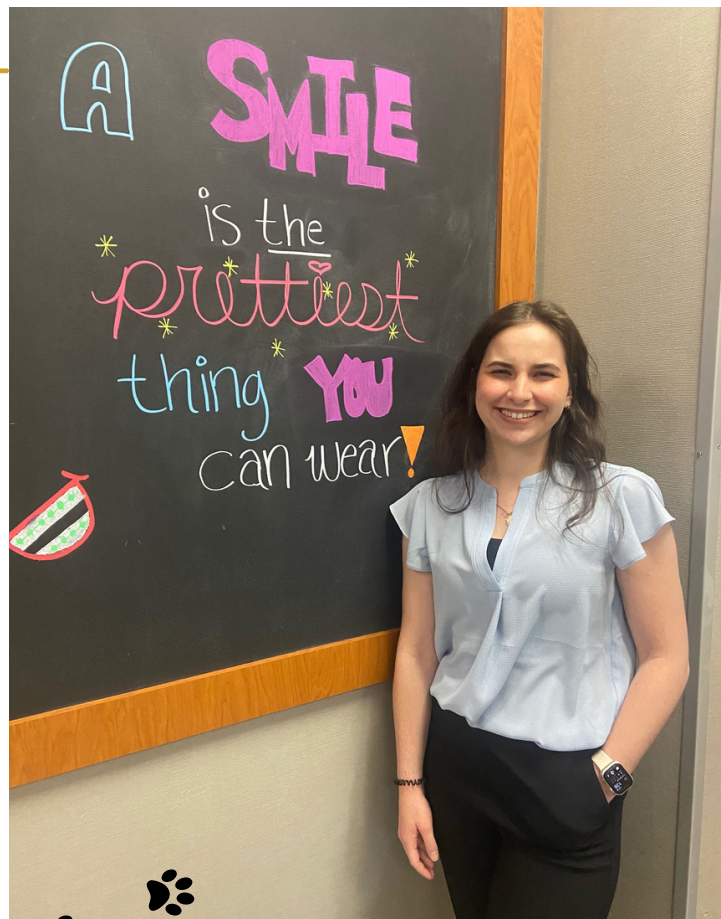 A SMILE
is the
prettiest
thing YOU
can wear!